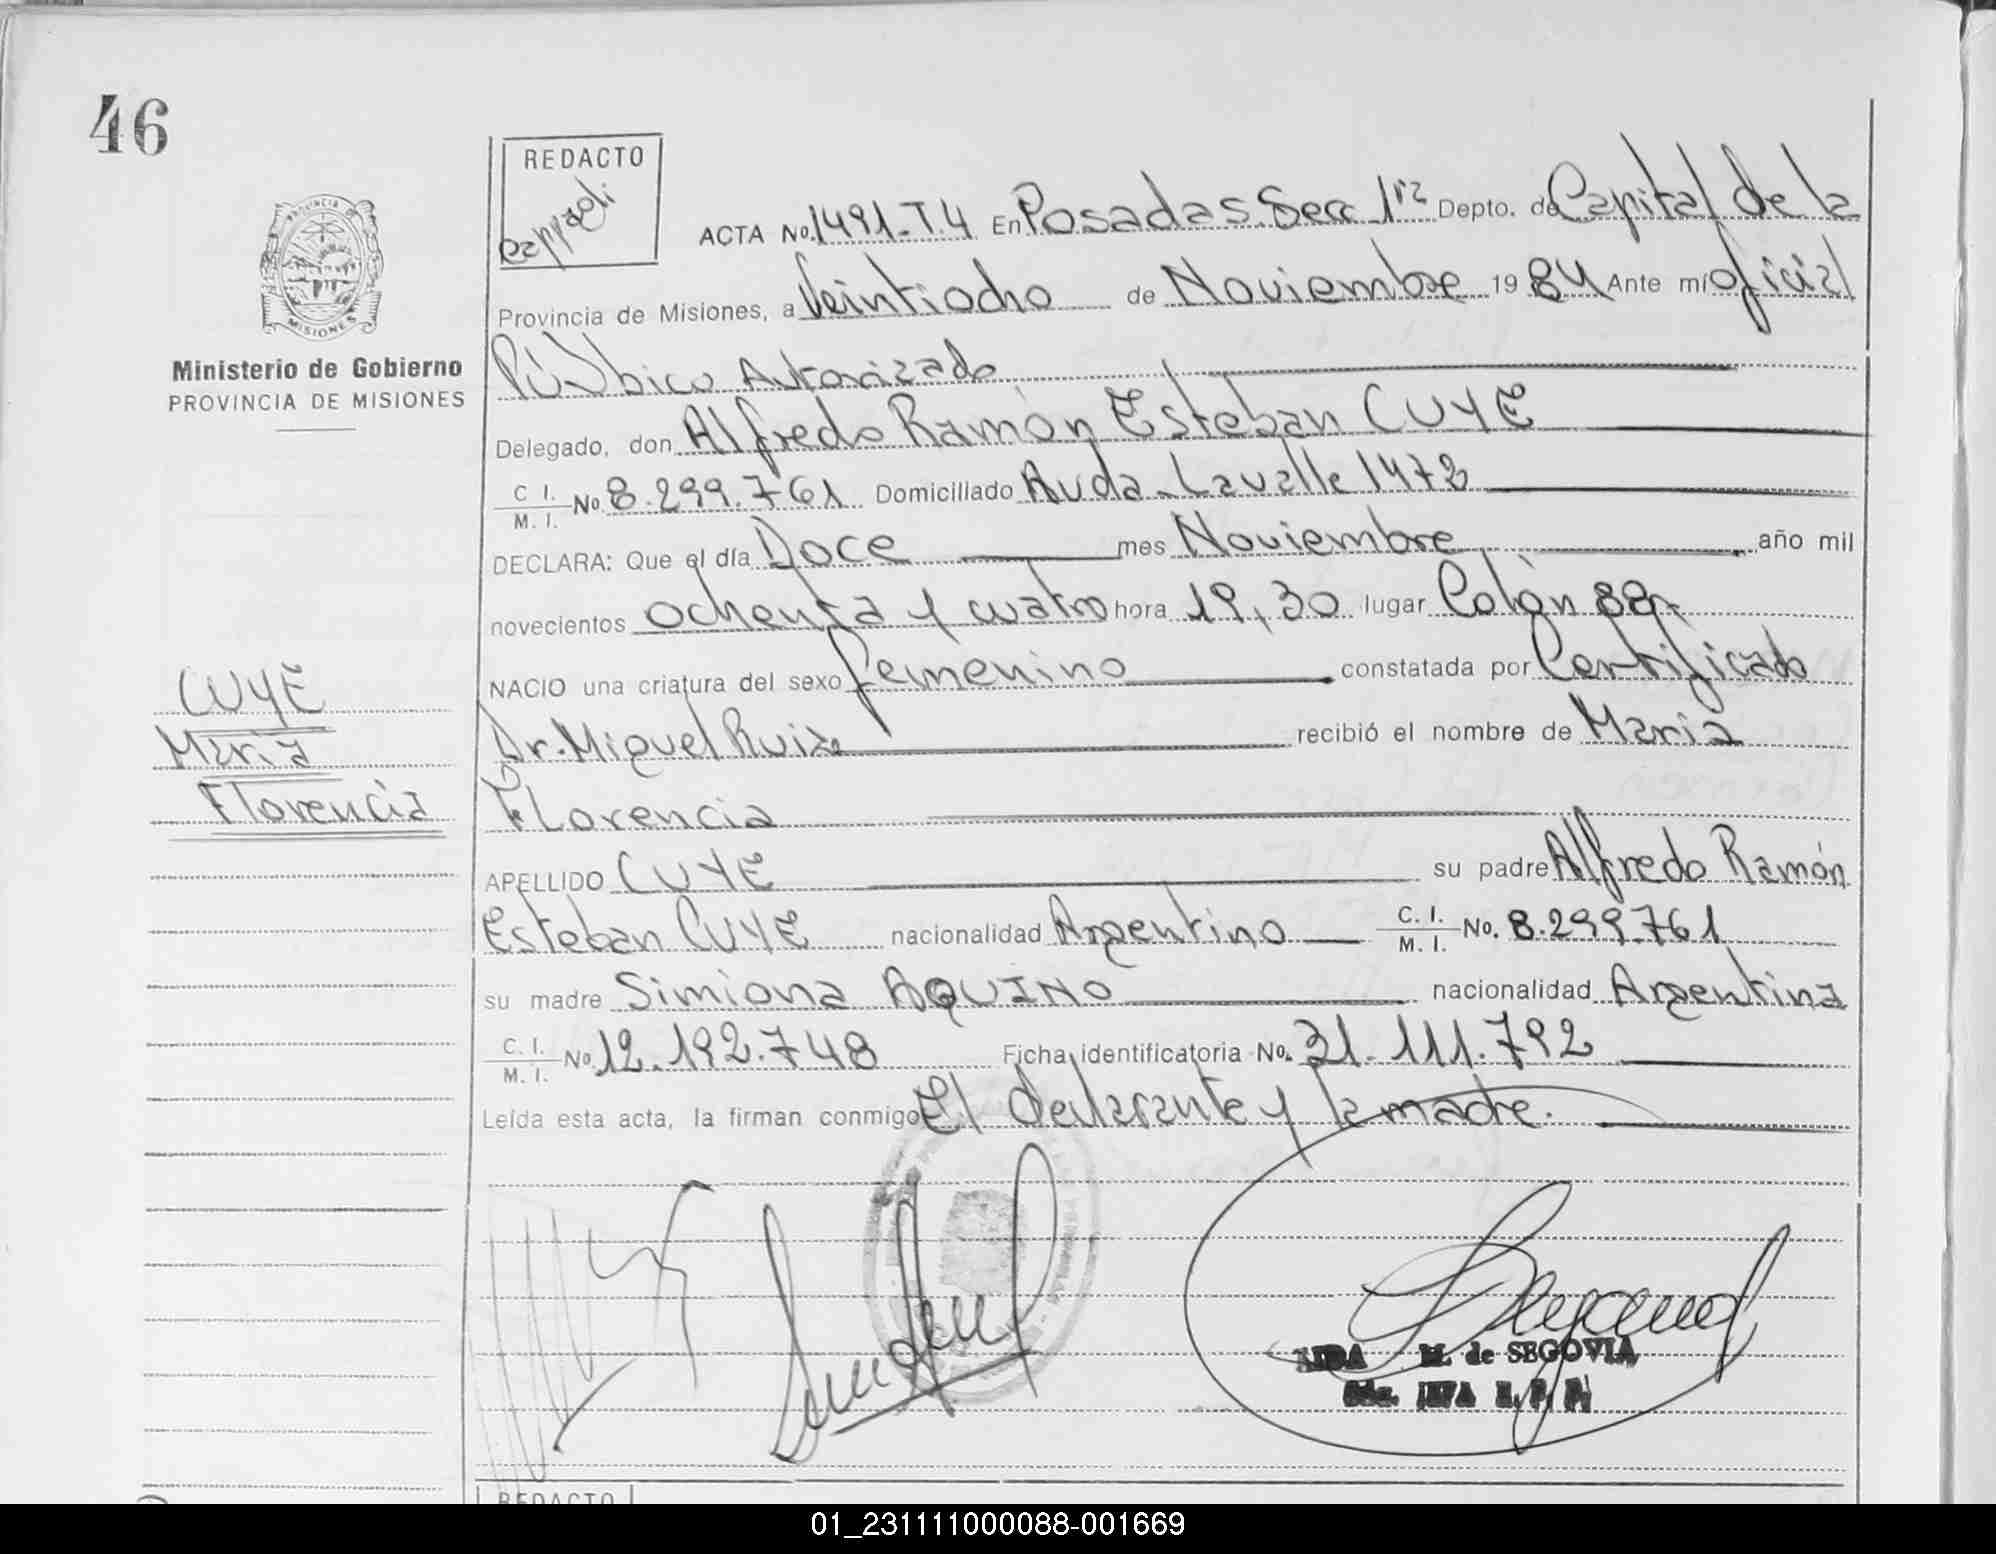 46
REDACTO
PROVINCIA DE
MISIONES
Ministerio de Gobierno
PROVINCIA DE MISIONES
ACTA No. 1491-T.4 En Posadas Secc 1ra Depto. de Capital de la
Provincia de Misiones, a Veintiocho de Noviembre 1984 Ante mí oficial
Público Autorizado
Delegado, don Alfredo Ramón Esteban CUYE
C I. M. I. No 8.299.761 Domiciliado Avda. Lavalle 1472
DECLARA: Que el día Doce mes Noviembre año mil
novecientos ochenta y cuatro hora 19,30 lugar Colón
NACIO una criatura del sexo femenino constatada por Certificado
Dr. Miguel Ruiz recibió el nombre de María
Florencia
APELLIDO CUYE su padre Alfredo Ramón
Esteban CUYE nacionalidad Argentino C. I. M. I. No. 8.299.761
su madre Simiona AQUINO nacionalidad Argentina
C. I. M. I. No. 12.192.748 Ficha identificatoria No. 31.111.792
Leída esta acta, la firman conmigo El declarante y la madre.
CUYE
María
Florencia
M. de SEGOVIA
REDACTO
01_231111000088-001669